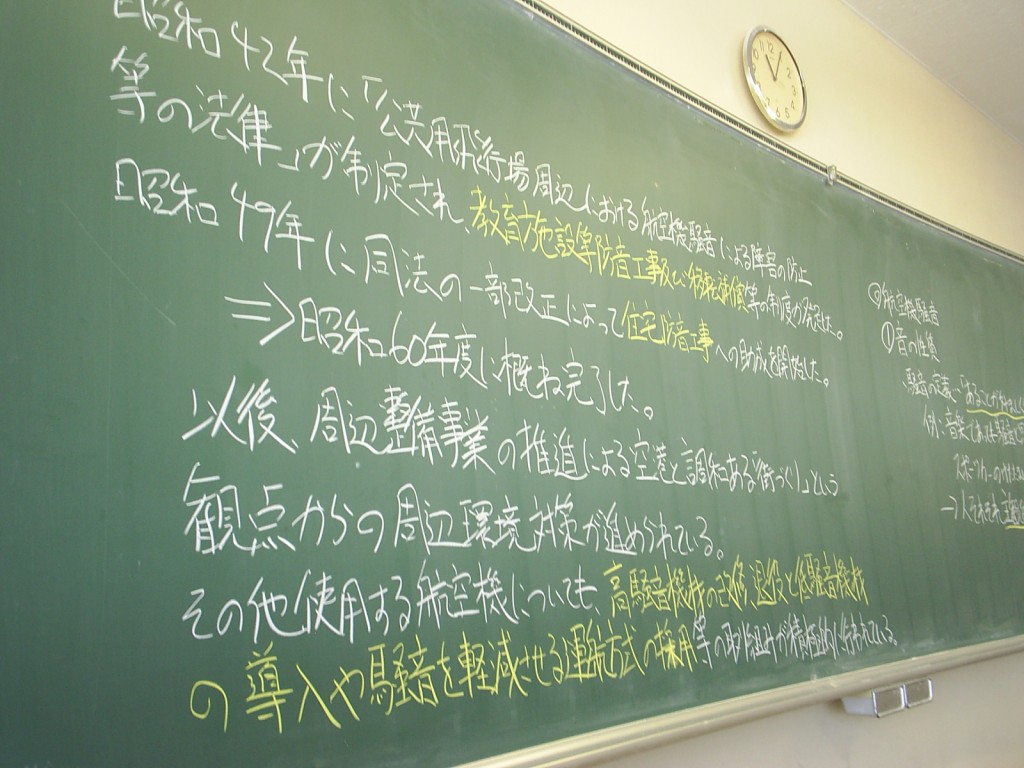 昭和42年に「公共用飛行場周辺における航空機騒音による障害の防止
等の法律」が制定され、教育施設等防音工事及び移転補償等の制度が発足した。
昭和49年に同法の一部改正によって住宅防音工事への助成を開始した。
⇒昭和60年度に概ね完了した。
以後、周辺整備事業の推進による空港と調和ある「街づくり」という
観点からの周辺環境対策が進められている。
その他使用する航空機についても、高騒音機材の改修、退役と低騒音機材
の導入や騒音を軽減させる運航方式の採用等の取り組みが積極的に行われている
◎航空機騒音
①音の性態
12